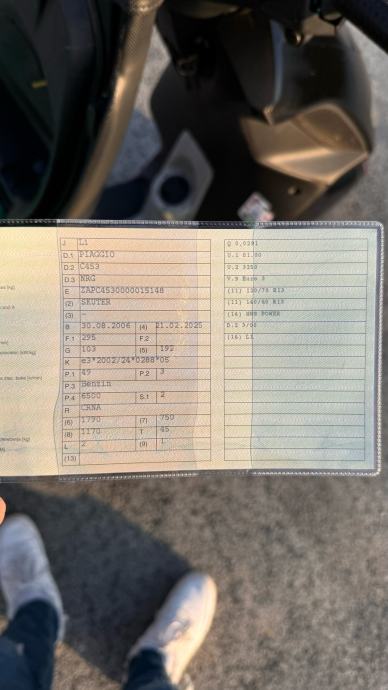 J L1
D.1 PIAGGIO
D.2 C453
D.3 NRG
E ZAPC4530000015148
(2) SKUTER
(3) -
B 30.08.2006 (4) 21.02.2025
F.1 295 F.2
G 103 (5) 192
K e3*2002/24*0288*05
P.1 49 P.2 3
P.3 Benzin
P.4 6500 S.1 2
R CRNA
(6) 1790 (7) 750
(8) 1170 T 45
L 2 (9) 1
(13)
Q 0,0291
U.1 81.00
U.2 3250
V.9 Euro 2
(11) 120/70 R13
(11) 140/60 R13
(14) NRG POWER
D.2 3/00
(16) L1